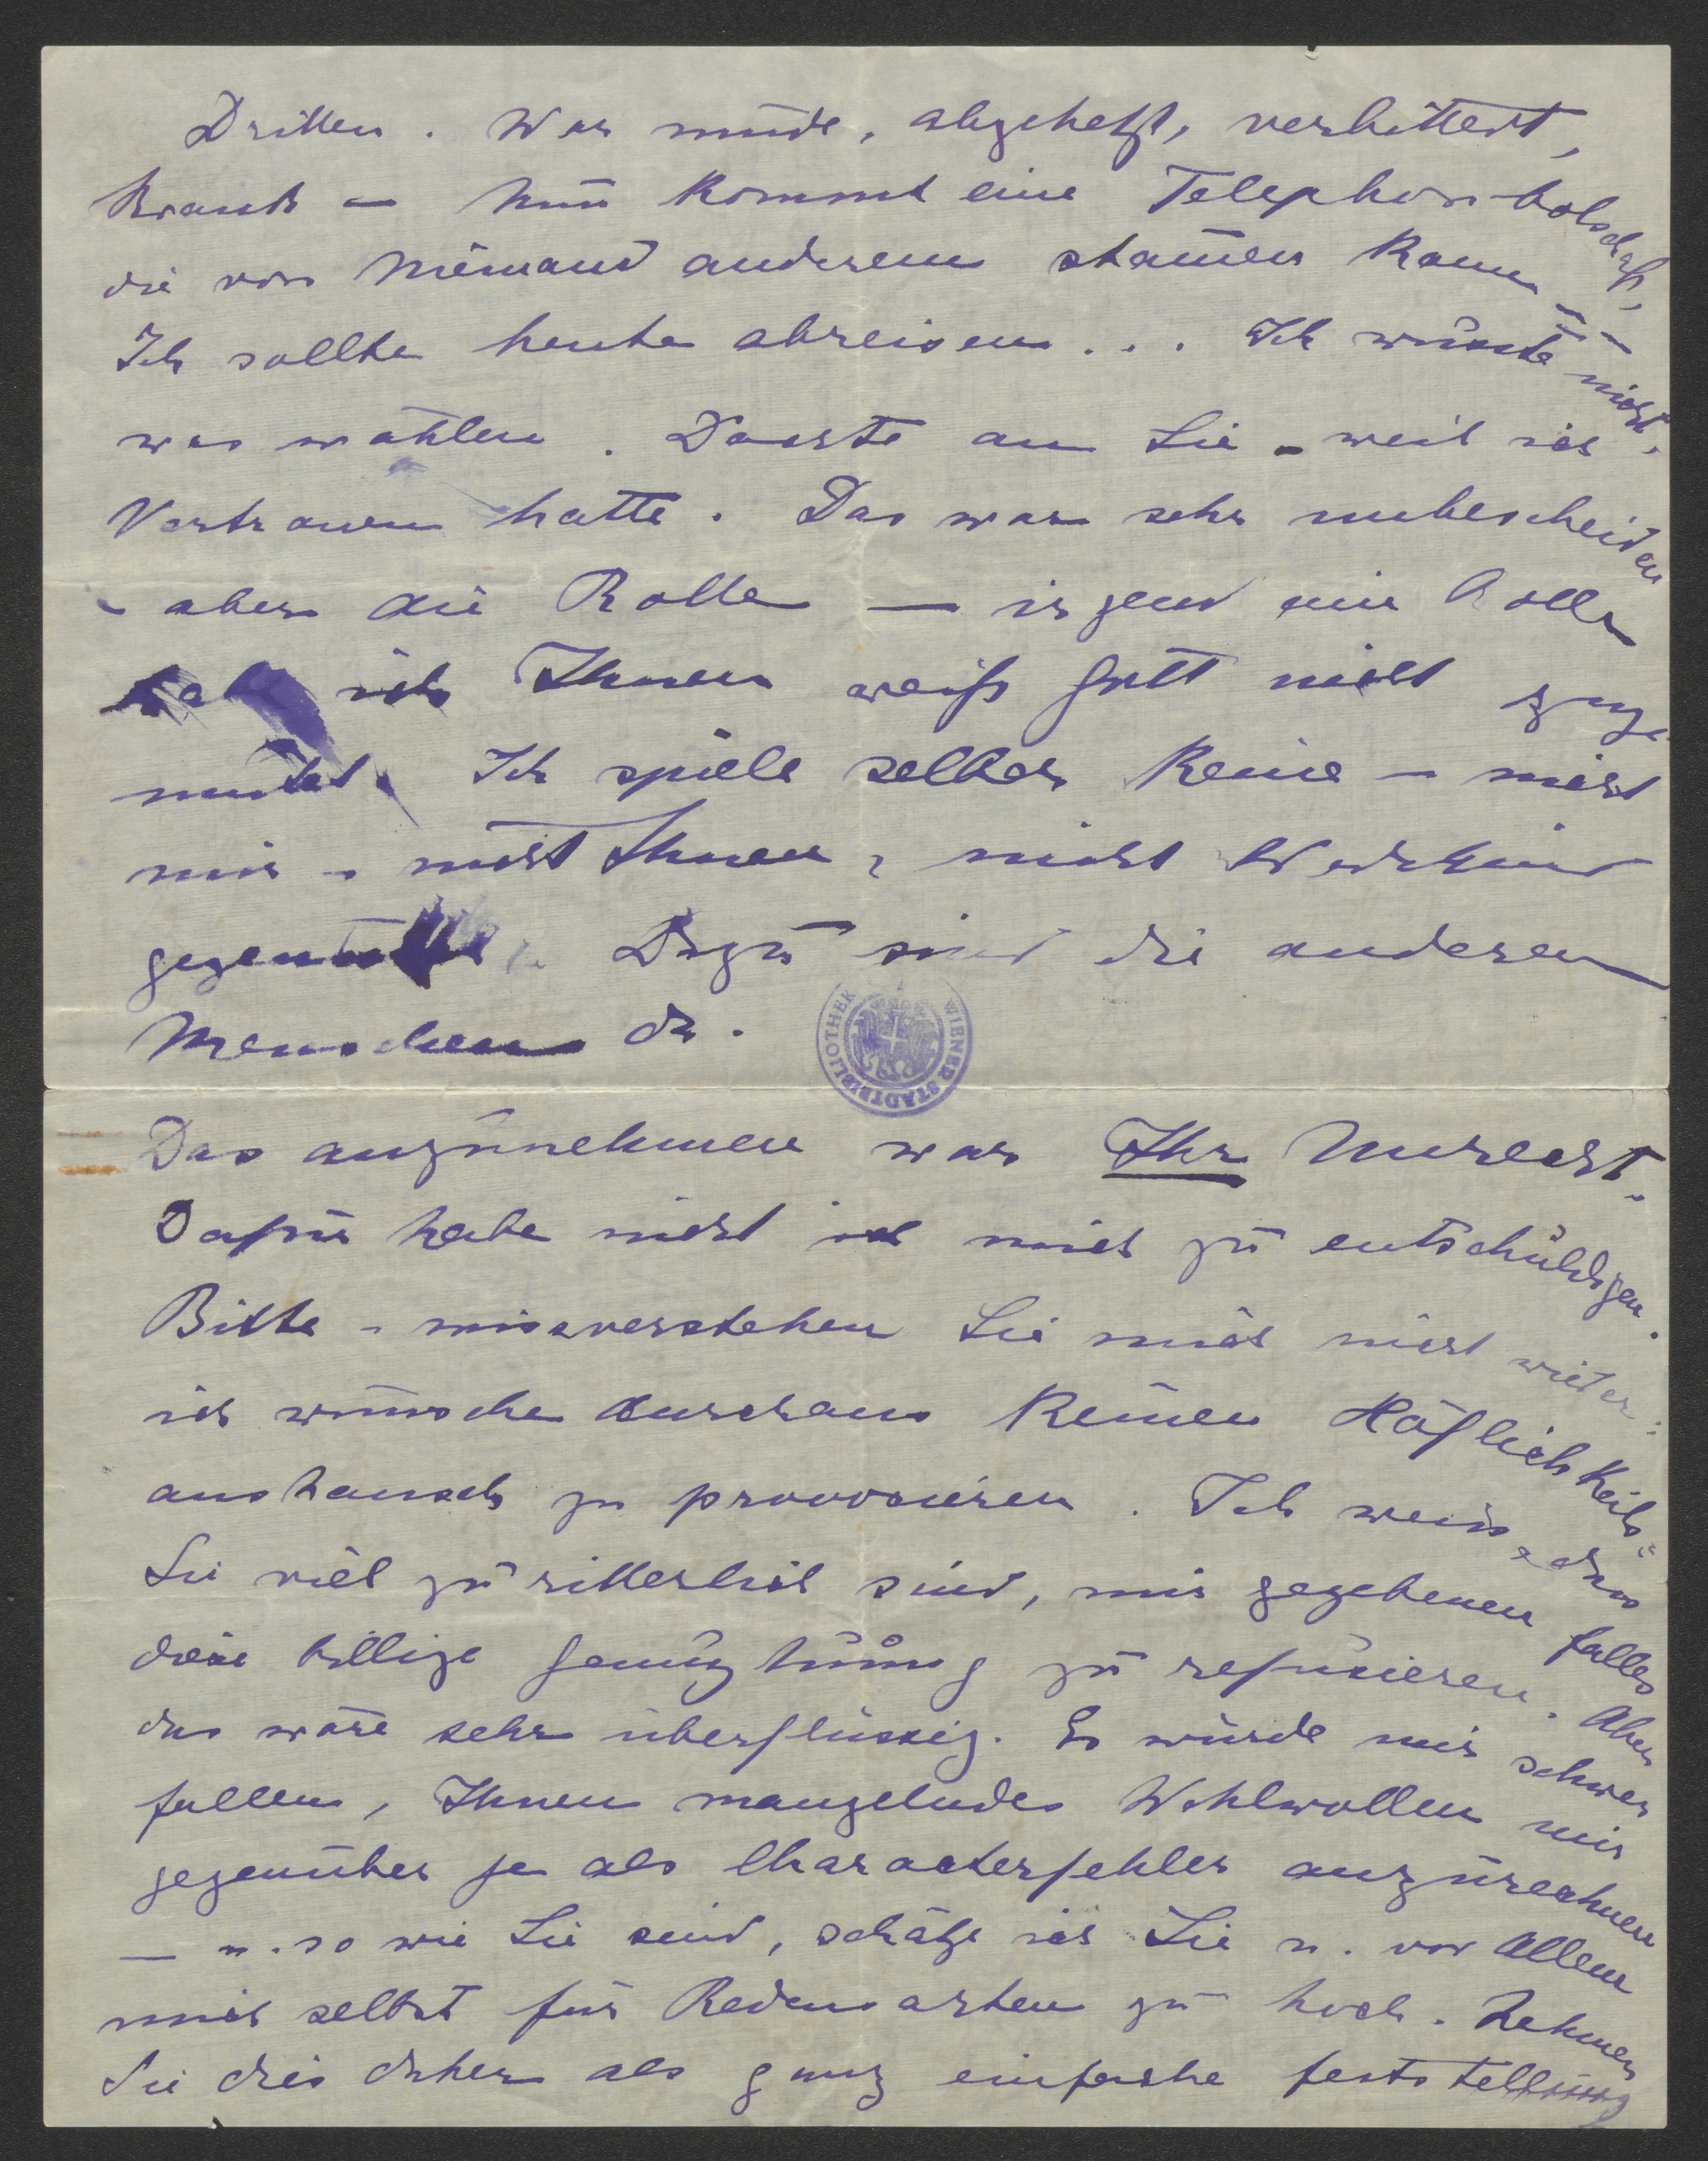 Dritten. War müde, abgehetzt, verbittert,
krank – nun kommt eine Telephonbotschaft,
die von Niemand anderem stammen kann –
Ich sollte heute abreisen... Ich wusste nicht,
was wählen. Dachte an Sie – weil ich
Vertrauen hatte. Das war sehr unbescheiden
– aber die Rolle – irgend eine Rolle
hab ich Ihnen weiß Gott nicht zuge-
mutet. Ich spiele selber keine – nicht
mir – nicht Ihnen, nicht
gegenüber. Dazu sind die anderen
Menschen da.
WIENER STADTBIBLIOTHEK
Das anzunehmen war Ihr Unrecht.
Dafür habe nicht ich mich zu entschuldigen.
Bitte – missverstehen Sie mich nicht wieder:
ich wünsche durchaus keinen Höflichkeits-
austausch zu provocieren. Ich weiss, dass
Sie viel zu ritterlich sind, mir gegebenen falles
diese billige Genugtuung zu refusieren. Aber
das wäre sehr überflüssig. Es würde mir schwer
fallen, Ihnen mangelndes Wohlwollen mir
gegenüber je als Characterfehler anzurechnen
– u. so wie Sie sind, schätze ich Sie u. vor Allem
mich selbst für Redensarten zu hoch. Nehmen
Sie dies daher als ganz einfache feststellung